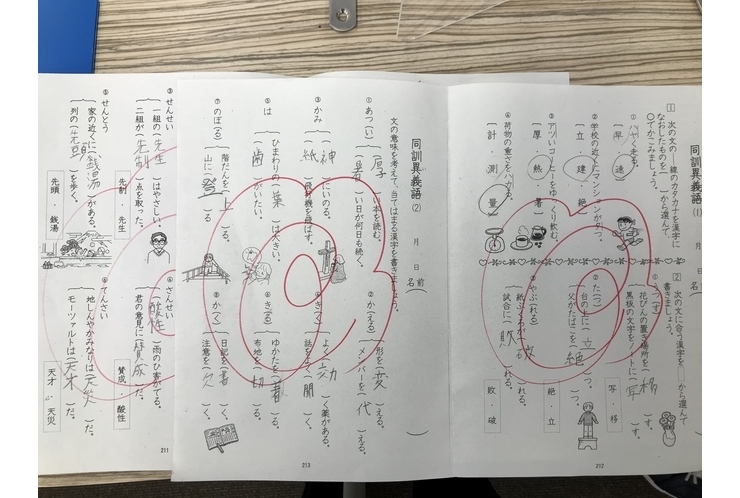 同訓異義語 (1) 月 日 名
1 次の文の──線のカタカナを漢字に
なおしたものを□から選んで
○でかこみましょう。
① ハヤく走る。
早・速
② 学校の近くにマンションがタつ。
立・建・絶
③ アツいコーヒーをゆっくり飲む。
厚・熱・暑
④ 荷物の重さをハカる。
計・測・量
2 次の文に合う漢字を□から選んで
書きましょう。
① うつ(す)
花びんの置き場所を(移)す。
黒板の文字をノートに(写)す。
写・移
② た(つ)
台の上に(立)つ。
父がたばこを(絶)つ。
絶・立
③ やぶ(れる)
れる。
試合に(敗)れる。
敗・破
212
同訓異義語 (2) 月 日 名前( )
文の意味を考えて、当てはまる漢字を書きましょう。
① あつ(い)
(厚)い本を読む。
(暑)い日が何日も続く。
② か(える)
形を(変)える。
メンバーを(代)える。
③ かみ
(神)にいのる。
(紙)飛行機を飛ばす。
④ き(く)
よく(効)く薬がある。
話を(聞)く。
⑤ は
ひまわりの(葉)は大きい。
(歯)がいたい。
⑥ き(る)
ゆかたを(着)る。
布地を(切)る。
⑦ のぼ(る)
階だんを(上)る。
山に(登)る
⑧ か(く)
日記を(書)く。
注意を(欠)く。
213
③ せんせい
一組の(先生)はやさしい。
二組が(先制)点を取った。
先制・先生
④ さんせい
(酸性)雨のひ害がでる。
君の意見に(賛成)だ。
賛成・酸性
⑤ せんとう
家の近くに(銭湯)がある。
列の(先頭)を歩く。
先頭・銭湯
⑥ てんさい
地しんやかみなりは(天災)だ。
モーツァルトは(天才)だ。
天才・天災
211